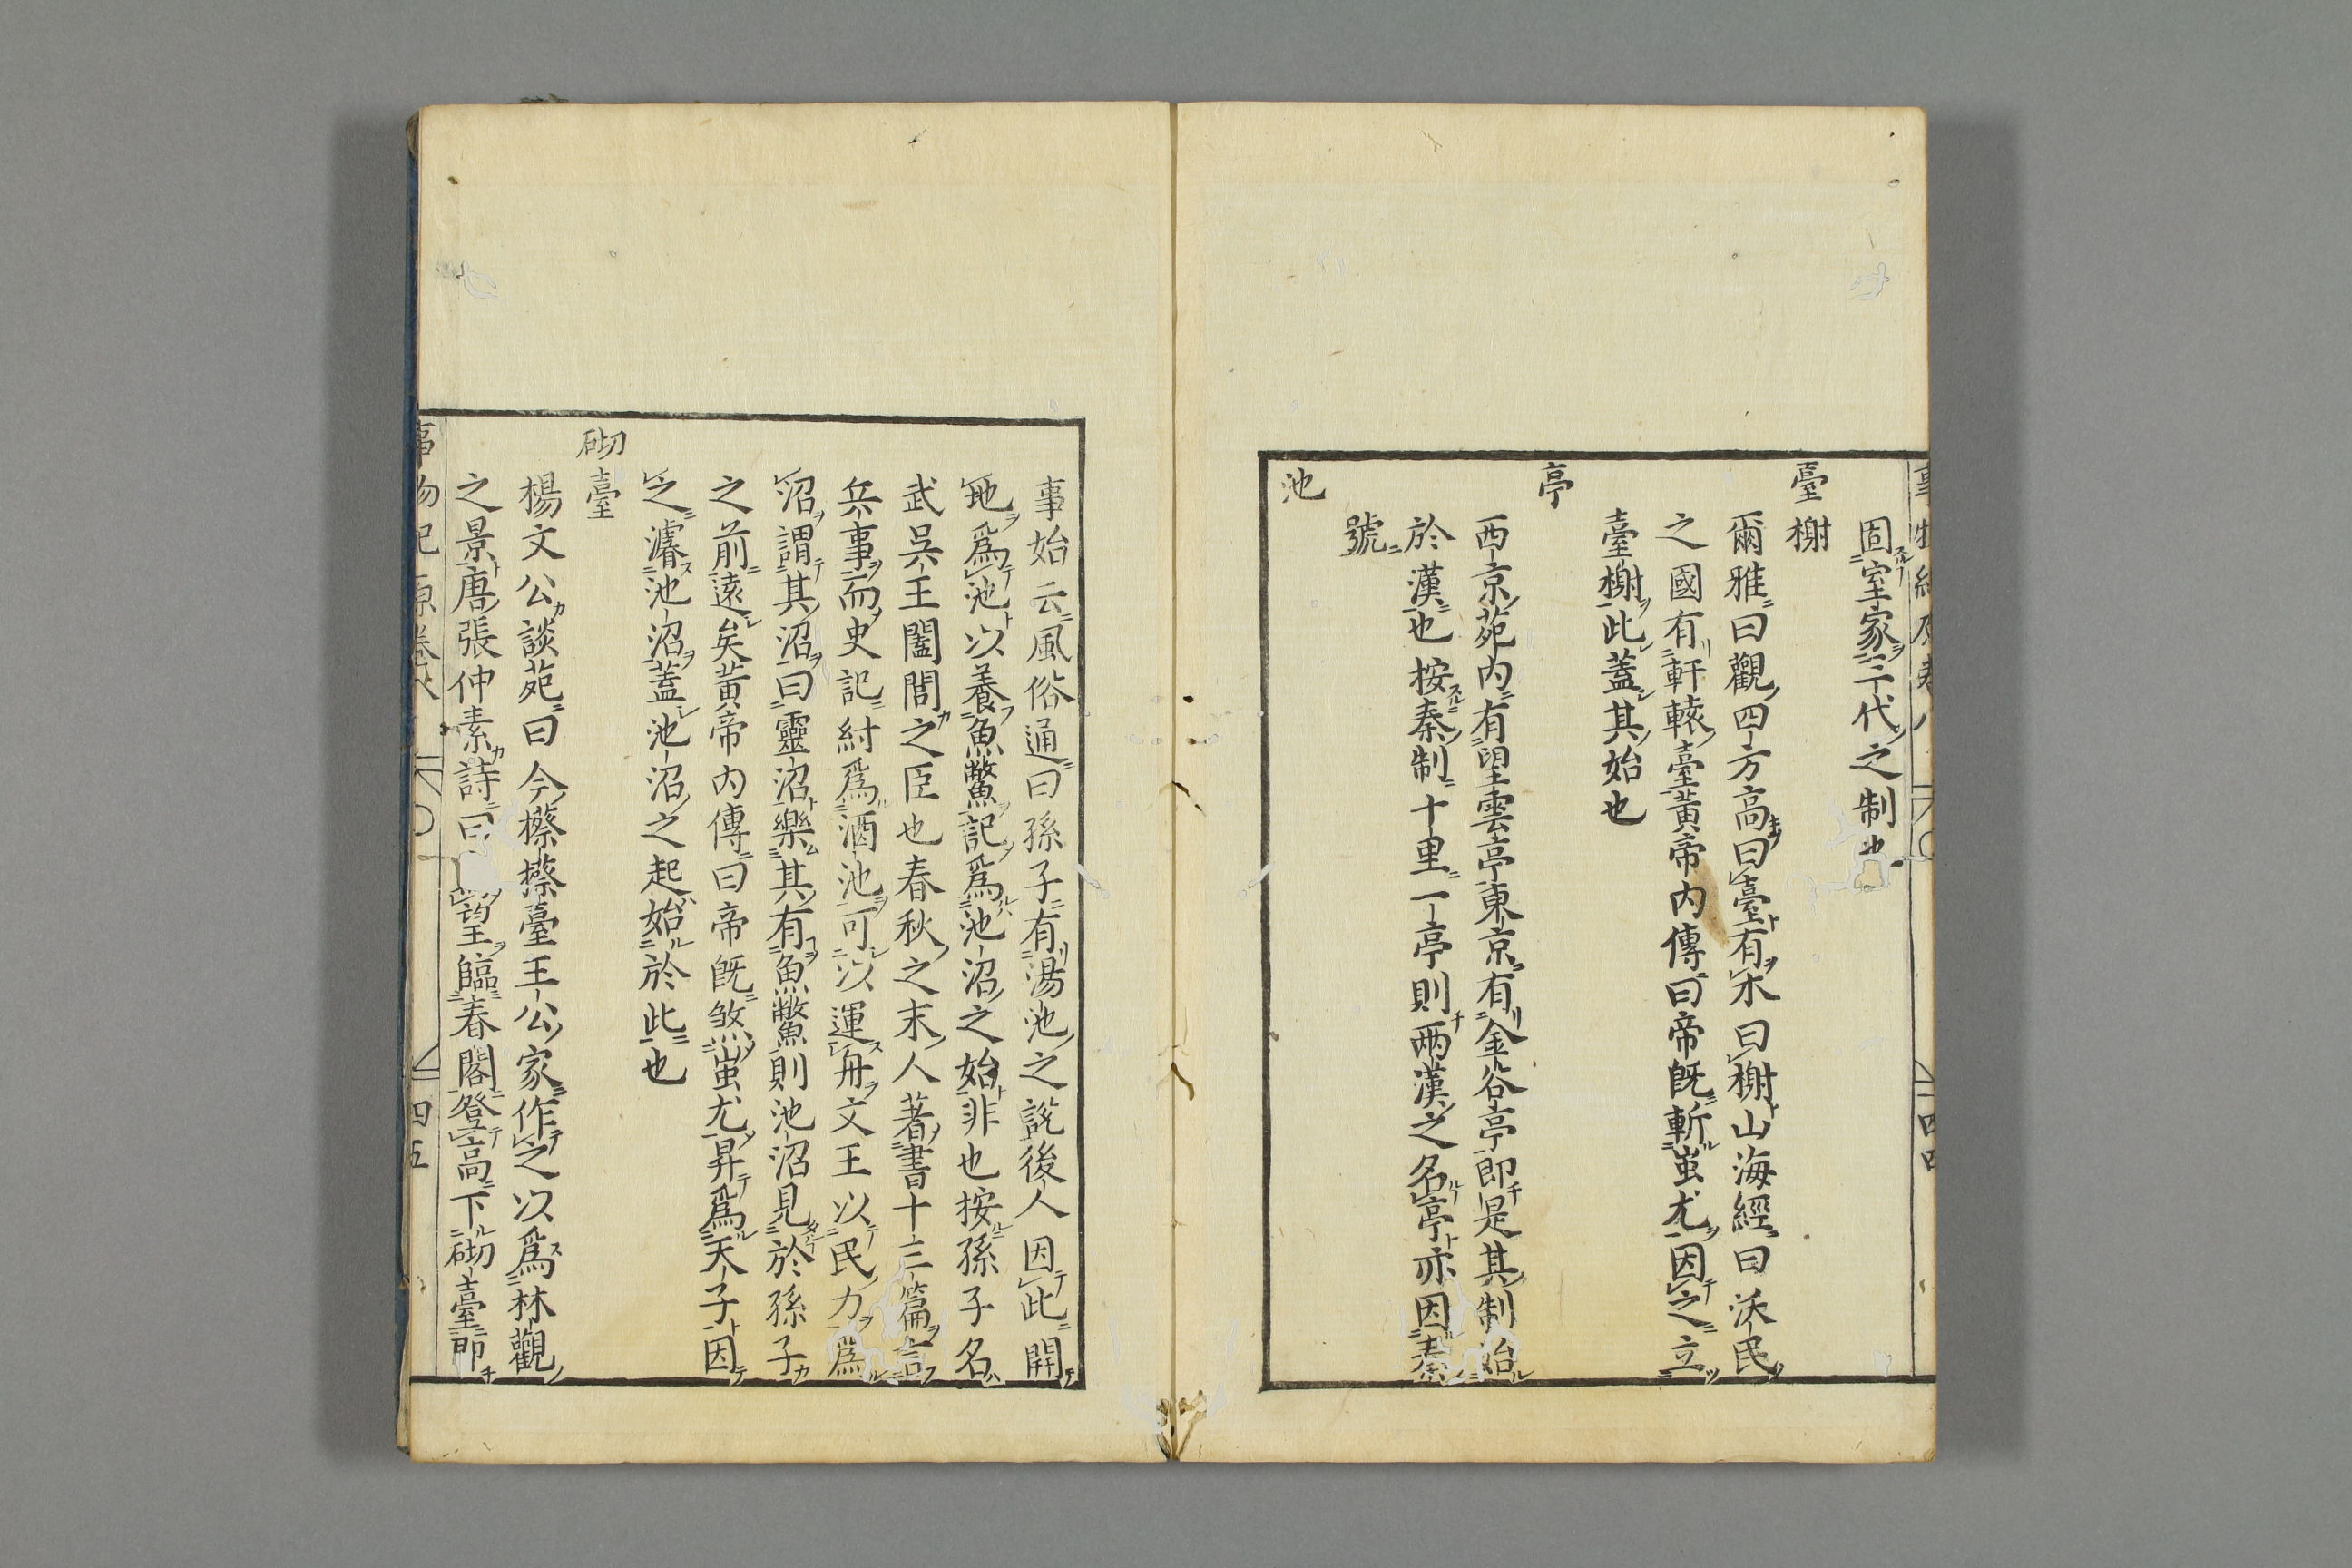 固室家三代之制也
臺榭
爾雅曰觀四方高曰臺有木曰榭山海經曰沃民
之國有軒轅臺黃帝内傳曰帝既斬蚩尤因之立
臺榭此蓋其始也
亭
西京苑内有望雲亭東京有金谷亭即是其制始
於漢也按秦制十里一亭則兩漢之名亭亦因秦
號
池
事始云風俗通曰孫子有湯池之說後人因此開
地爲池以養魚鱉記爲池沼之始非也按孫子名
武吳王闔閭之臣也春秋之末人著書十三篇言
兵事而史記紂爲酒池可以運舟文王以民力爲
沼謂其沼曰靈沼樂其有魚鱉則池沼見於孫子
之前遠矣黃帝内傳曰帝既煞蚩尤昇爲天子因
之濬池沼蓋池沼之起始於此也
砌臺
楊文公談苑曰今䃰䃰臺王公家作之以爲林觀
之景唐張仲素詩曰望臨春閣登高下砌臺即
事物紀原卷八
四五